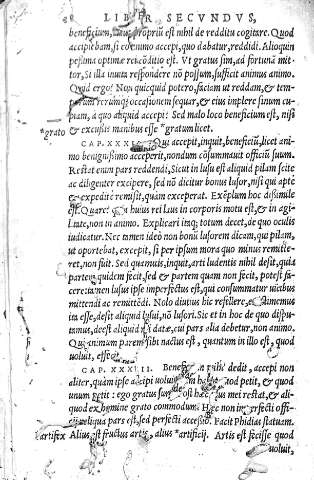 LIBER SECVNDVS,
beneficium, propriũ est nihil de redditu cogitare. Quod
accipiebam, si eo animo accepi, quo dabatur, reddidi. Alioquin
pessima optimæ rei cõditio est. Vt gratus sim, ad fortunã mit-
tor, Si illa inuita respondere nõ possum, sufficit animus animo.
Quid ergo? Nun quicquid potero, faciam ut reddam, & tem-
porum rerumq́; occasionem sequar, & eius implere sinum cu-
piam, à quo aliquid accepi? Sed malo loco beneficium est, nisi
*grato & excussis manibus esse *gratum licet.
CAP. Qui accepit, inquit, beneficiũ, licet ani
mo benignissimo acceperit, nondum cõsummauit officiũ suum.
Restat enim pars reddendi, Sicut in lusu est aliquid pilam scite
ac diligenter excipere, sed nõ dicitur bonus lusor, nisi qui apte
& expedite remisit, quam exceperat. Exẽplum hoc dissimile
est. Quare? huius rei lus in corporis motu est, & in agi-
litate, non in animo. Explicari itaq; totum decet, de quo oculis
iudicatur. Nec tamen ideo non bonũ lusorem dicam, qui pilam,
ut oportebat, excepit, si per ipsum mora quo minus remitte-
ret, non fuit. Sed quamuis, inquit, arti ludentis nihil desit, quia
partem quidem fecit, sed & partem quam non fecit, potest fa-
cere: tamen lusus ipse imperfectus est, qui consummatur uicibus
mittendi ac remittẽdi. Nolo diutius hic refellere, existimemus
ita esse, desit aliquid lusui, nõ lusori. Sic et in hoc de quo dispu-
tamus, deest aliquid rei datæ, cui pars alia debetur, non animo.
Qui animum parem sibi nactus est, quantum in illo est, quod
uoluit,
CAP. Beneficium mihi dedit, accepi non
aliter, quàm ipse accipi uoluit petit, & quod
unum petit: ergo gratus sum. Post hæc usus mei restat, & ali-
quod ex homine grato commodum. Hæc non imperfecti offi-
cij reliqua pars est, sed perfecti accessio. Facit Phidias statuam.
*artifex Alius est fructus artis, alius *artificij. Artis est fecisse quod
uoluit,